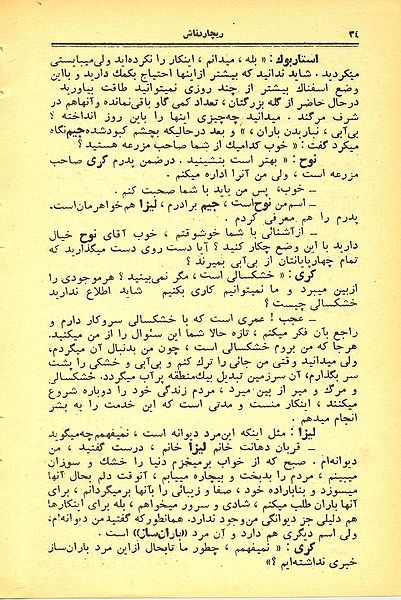 ۳۴ ریچاردنش
استاربوك: « بله ، میدانم ، اینکار را نکرده‌اید ولی میبایستی
میکردید . شاید ندانید که بیشتر ازاینها احتیاج بکمك دارید و بااین
وضع اسفناك بیشتر از چند روزی نمیتوانید طاقت بیاورید .
درحال حاضر از گله بزرگتان ، تعداد کمی گاو باقی‌مانده وآنهاهم در
شرف مرگند . میدانید چه‌چیزی اینها را باین روز انداخته ؟
بی‌آبی ، نباریدن باران ، » و بعد درحالیکه بچشم کبودشده جیم‌نگاه
میکرد گفت : « خوب کدامیك از شما صاحب مزرعه هستید ؟
نوح : « بهتر است بنشینید . درضمن پدرم کری صاحب
مزرعه است ، ولی من آنرا اداره میکنم .
ــ خوب، پس من باید با شما صحبت کنم .
ــ اسم‌من نوح‌است ، جیم برادرم ، لیزا هم‌خواهرمان‌است.
پدرم را هم معرفی کردم .
ــ ازآشنائی با شما خوشوقتم ، خوب آقای نوح خیال
دارید با این وضع چکار کنید ؟ آیا دست روی دست میگذارید که
تمام چهارپایانتان از بی‌آبی بمیرند ؟
کری : « خشکسالی است ، مگر نمی‌بینید ؟ هرموجودی را
ازبین میبرد و ما نمیتوانیم کاری بکنیم شاید اطلاع ندارید
خشکسالی چیست ؟
ــ عجب ! عمری است که با خشکسالی سروکار دارم و
راجع بآن فکر میکنم ، تازه حالا شما این سئوال را از من میکنید.
هرجا که من بروم خشکسالی است ، چون من بدنبال آن میگردم.
ولی میدانید وقتی من جائی را ترك کنم و بی‌آبی و خشکی را پشت
سر بگذارم، آن سرزمین تبدیل بیك‌منطقه پرآب میگردد. خشکسالی
و مرگ و میر از بین میرد ، مردم زندگی خود را دوباره شروع
میکنند ، اینکار منست و مدتی است که این خدمت را به بشر
انجام میدهم .
لیزا : مثل اینکه این‌مرد دیوانه است ، نمیفهمم‌چه‌میگوید
ــ قربان دهانت خانم لیزا خانم ، درست گفتید ، من
دیوانه‌ام . صبح که از خواب برمیخزم دنیا را خشك و سوزان
میبینم ، مردم را بدبخت و بیچاره مییابم ، آنوقت دلم بحال آنها
میسوزد و بناباراده خود ، صفا و زیبائی را بآنها برمیگردانم ، برای
آنها باران طلب میکنم ، شادی و سرور میخواهم ، بله برای اینکارها
هم دلیلی جز دیوانگی من‌وجود ندارد. همانطورکه گفتید من دیوانه‌ام،
ولی اسم دیگری هم دارد و آن مرد «باران‌ساز» است .
کری : « نمیفهمم ، چطور ما تابحال ازاین مرد باران‌ساز
خبری نداشته‌ایم ؟»